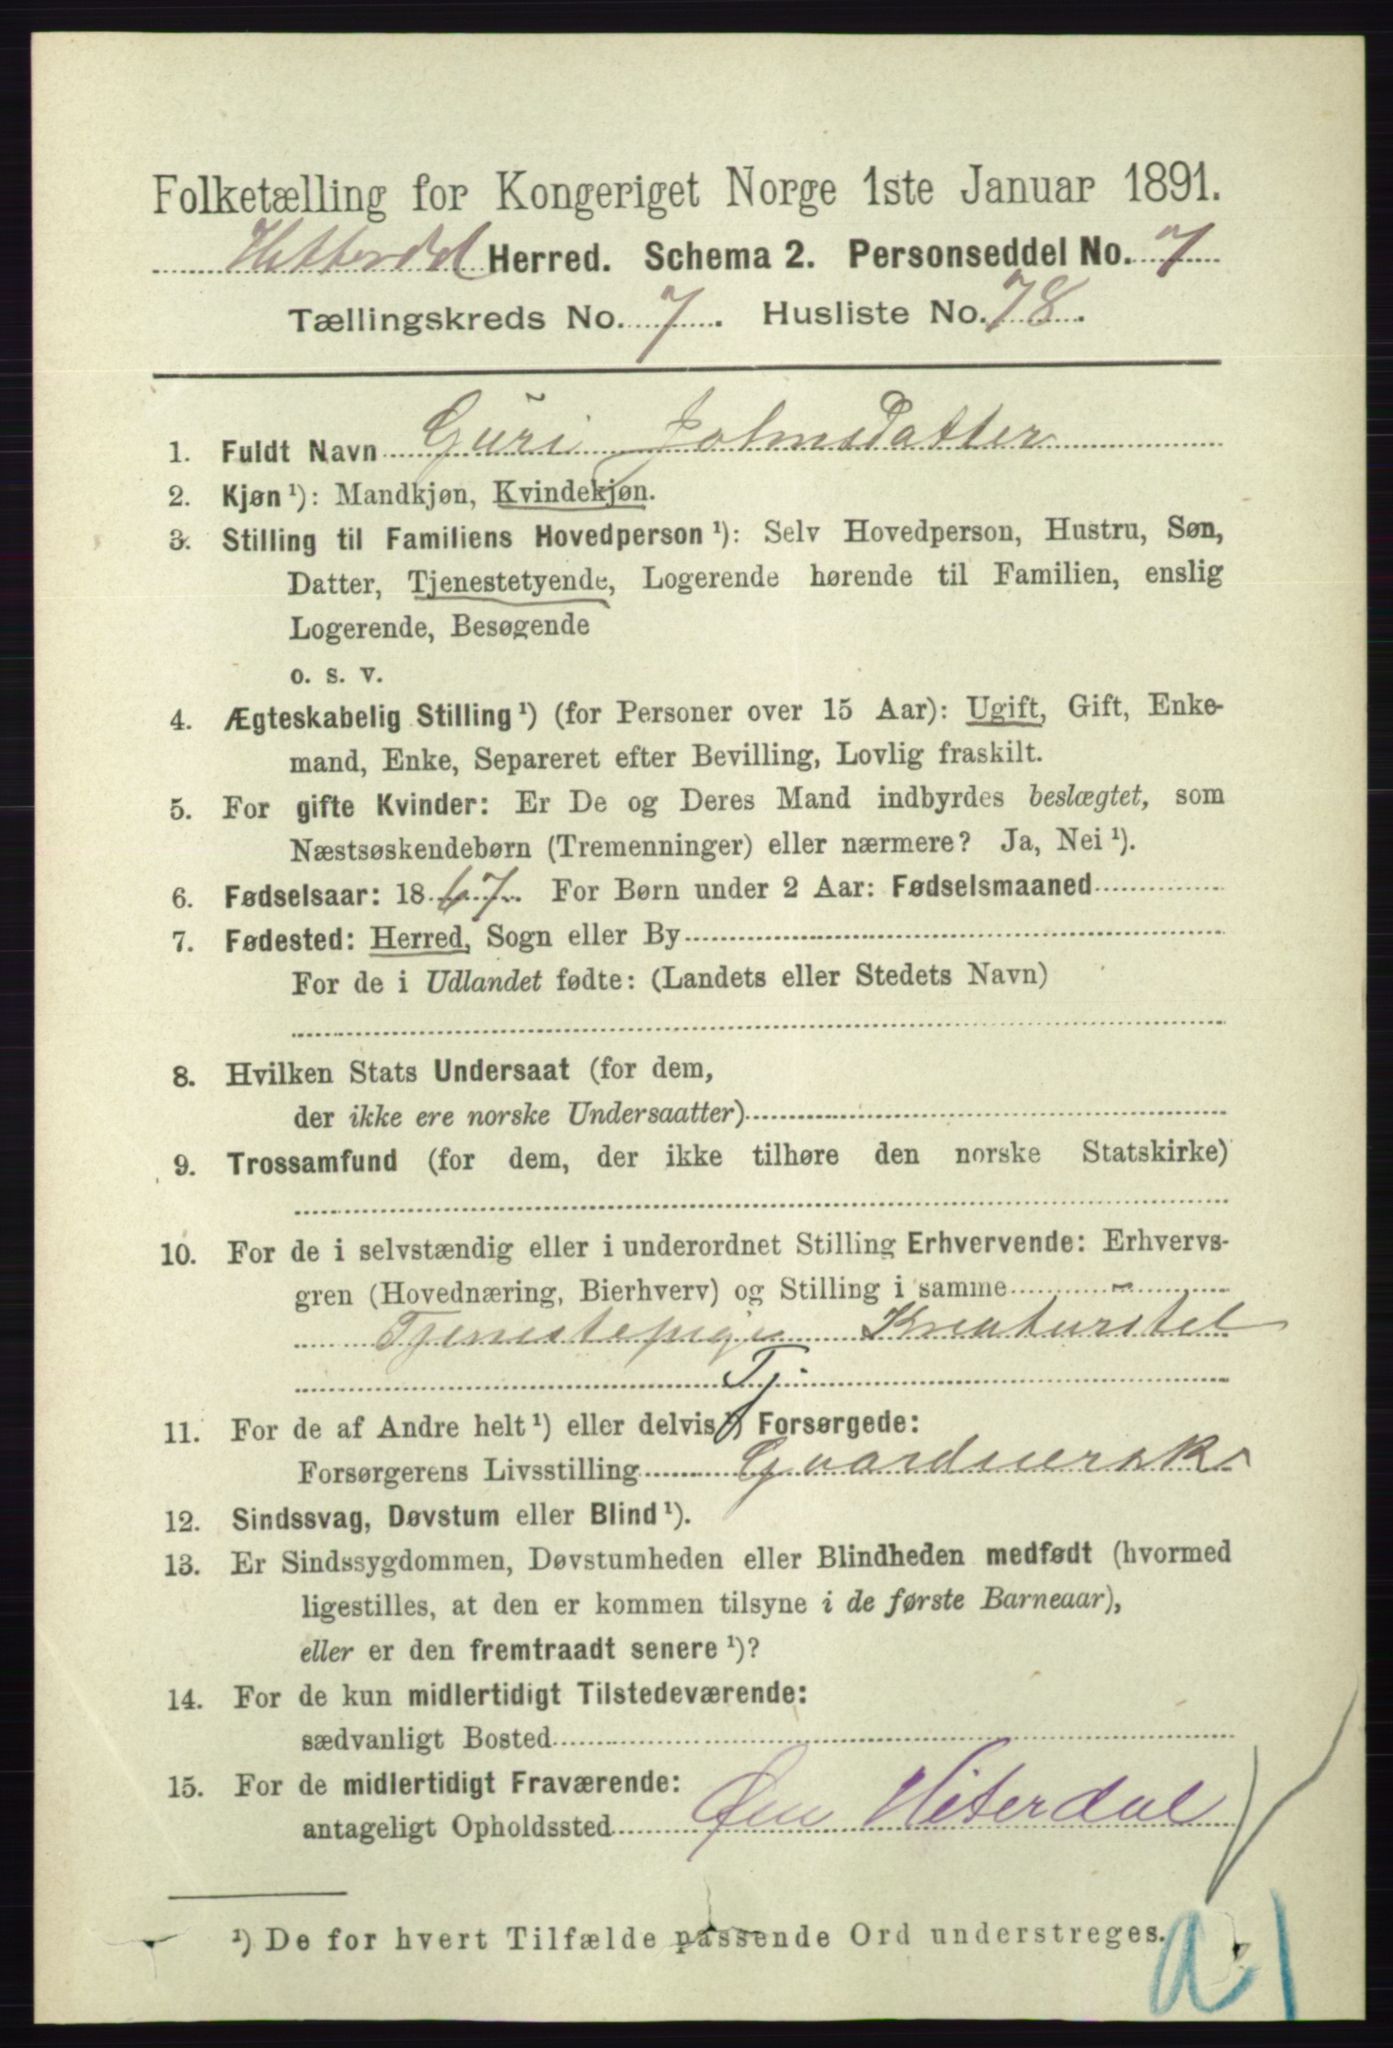 Folketælling for Kongeriget Norge 1ste Januar 1891.
Hitterdal Herred. Schema 2. Personseddel No. 7
Tællingskreds No. 7. Husliste No. 78.
1. Fuldt Navn Guri Johnsdatter
2. Kjøn ¹): Mandkjøn, Kvindekjøn.
3. Stilling til Familiens Hovedperson ¹): Selv Hovedperson, Hustru, Søn,
Datter, Tjenestetyende, Logerende hørende til Familien, enslig
Logerende, Besøgende
o. s. v.
4. Ægteskabelig Stilling ¹) (for Personer over 15 Aar): Ugift, Gift, Enke-
mand, Enke, Separeret efter Bevilling, Lovlig fraskilt.
5. For gifte Kvinder: Er De og Deres Mand indbyrdes beslægtet, som
Næstsøskendebørn (Tremenninger) eller nærmere? Ja, Nei ¹).
6. Fødselsaar: 1867. For Børn under 2 Aar: Fødselsmaaned
7. Fødested: Herred, Sogn eller By
For de i Udlandet fødte: (Landets eller Stedets Navn)
8. Hvilken Stats Undersaat (for dem,
der ikke ere norske Undersaatter)
9. Trossamfund (for dem, der ikke tilhøre den norske Statskirke)
10. For de i selvstændig eller i underordnet Stilling Erhvervende: Erhvervs-
gren (Hovednæring, Bierhverv) og Stilling i samme
Tjenestepige Kreaturstel
Tj
11. For de af Andre helt ¹) eller delvis ¹) Forsørgede:
Forsørgerens Livsstilling
12. Sindssvag, Døvstum eller Blind ¹).
13. Er Sindssygdommen, Døvstumheden eller Blindheden medfødt (hvormed
ligestilles, at den er kommen tilsyne i de første Barneaar),
eller er den fremtraadt senere ¹)?
14. For de kun midlertidigt Tilstedeværende:
sædvanligt Bosted
15. For de midlertidigt Fraværende:
antageligt Opholdssted Hiterdal
¹) De for hvert Tilfælde passende Ord understreges.